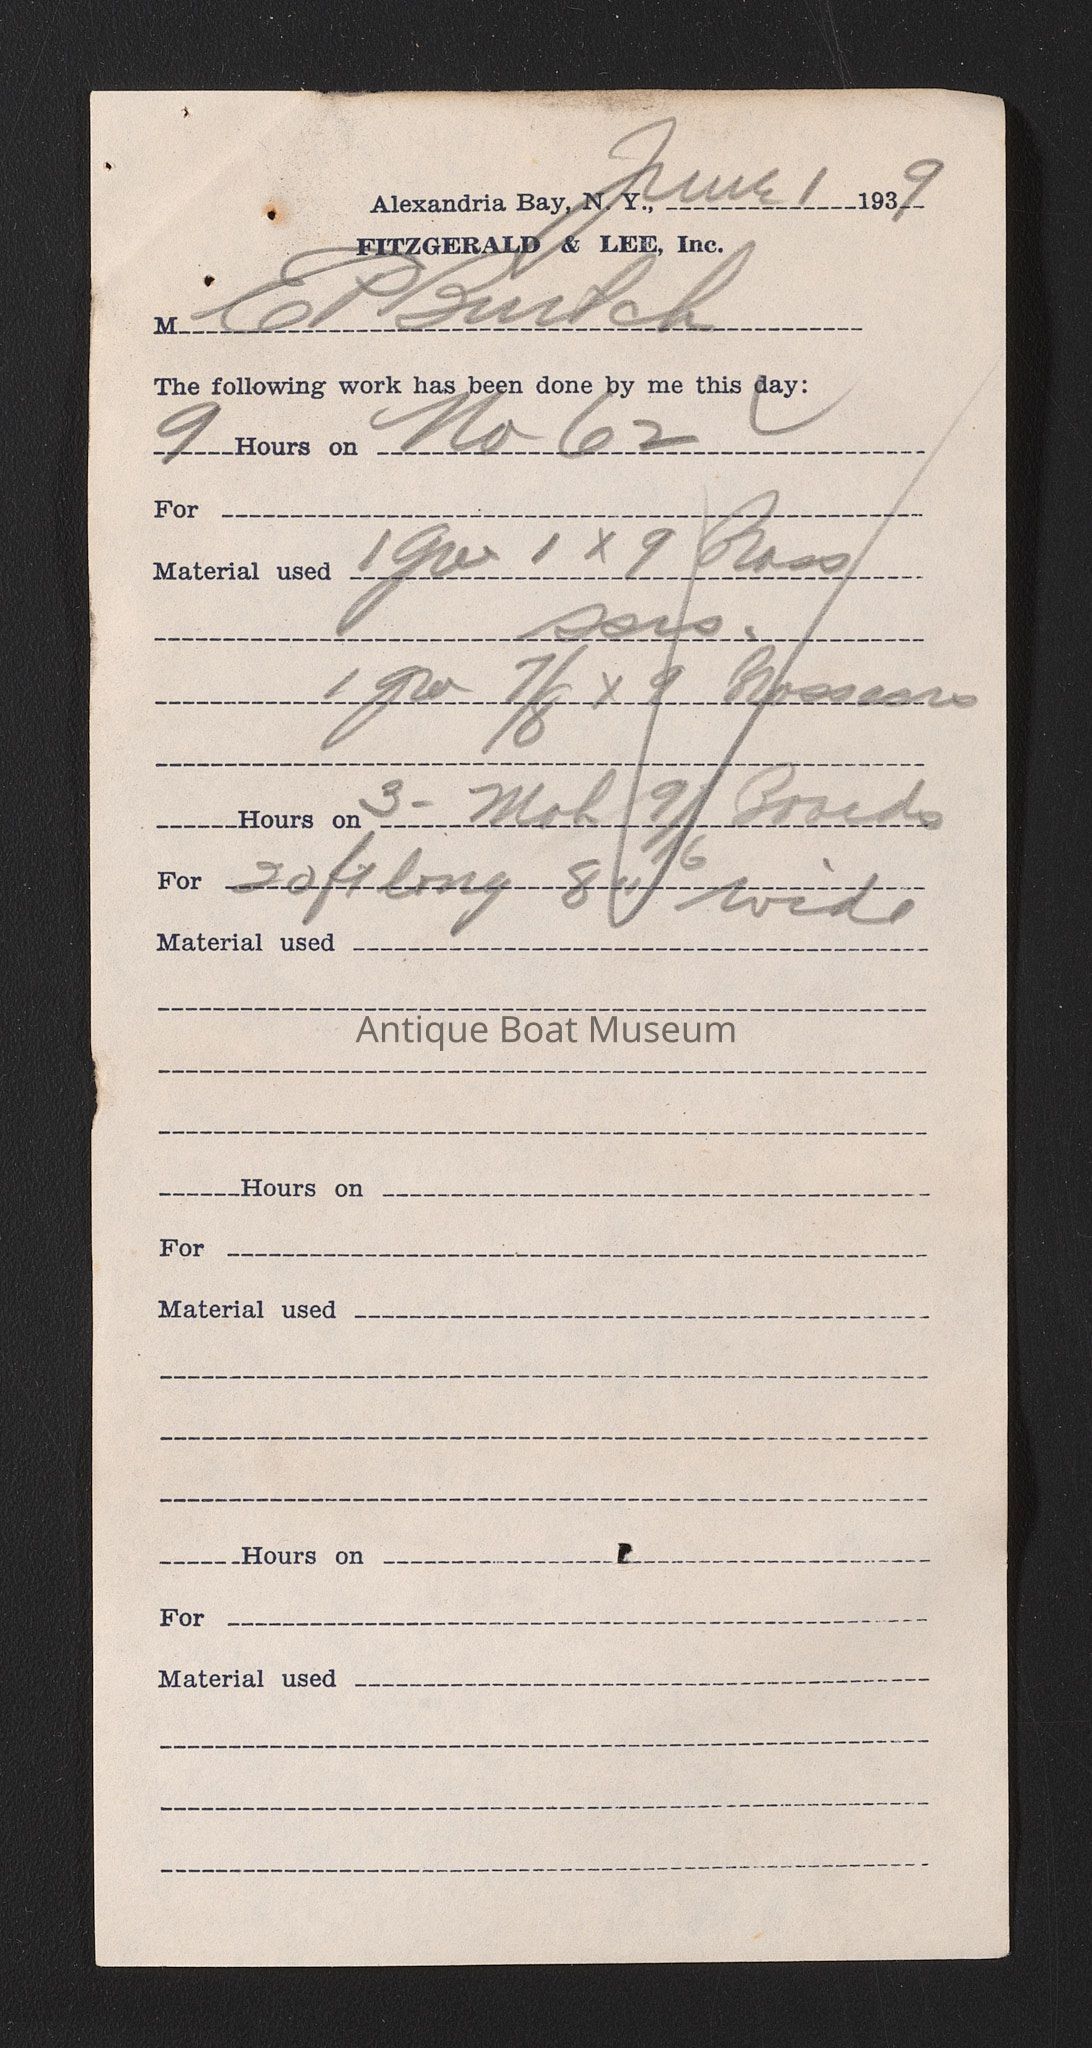 Alexandria Bay, N. Y., June 1 1939
FITZGERALD & LEE, Inc.
M E P Burtch
The following work has been done by me this day:
9 Hours on No 62
For
Material used 1 gro 1 x 9 Brass
scrs.
1 gro 7/8 x 9 Brass scrs
Hours on 3- Moh 9/16 Boards
For 20 ft long 8" wide
Material used
Antique Boat Museum
Hours on
For
Material used
Hours on
For
Material used